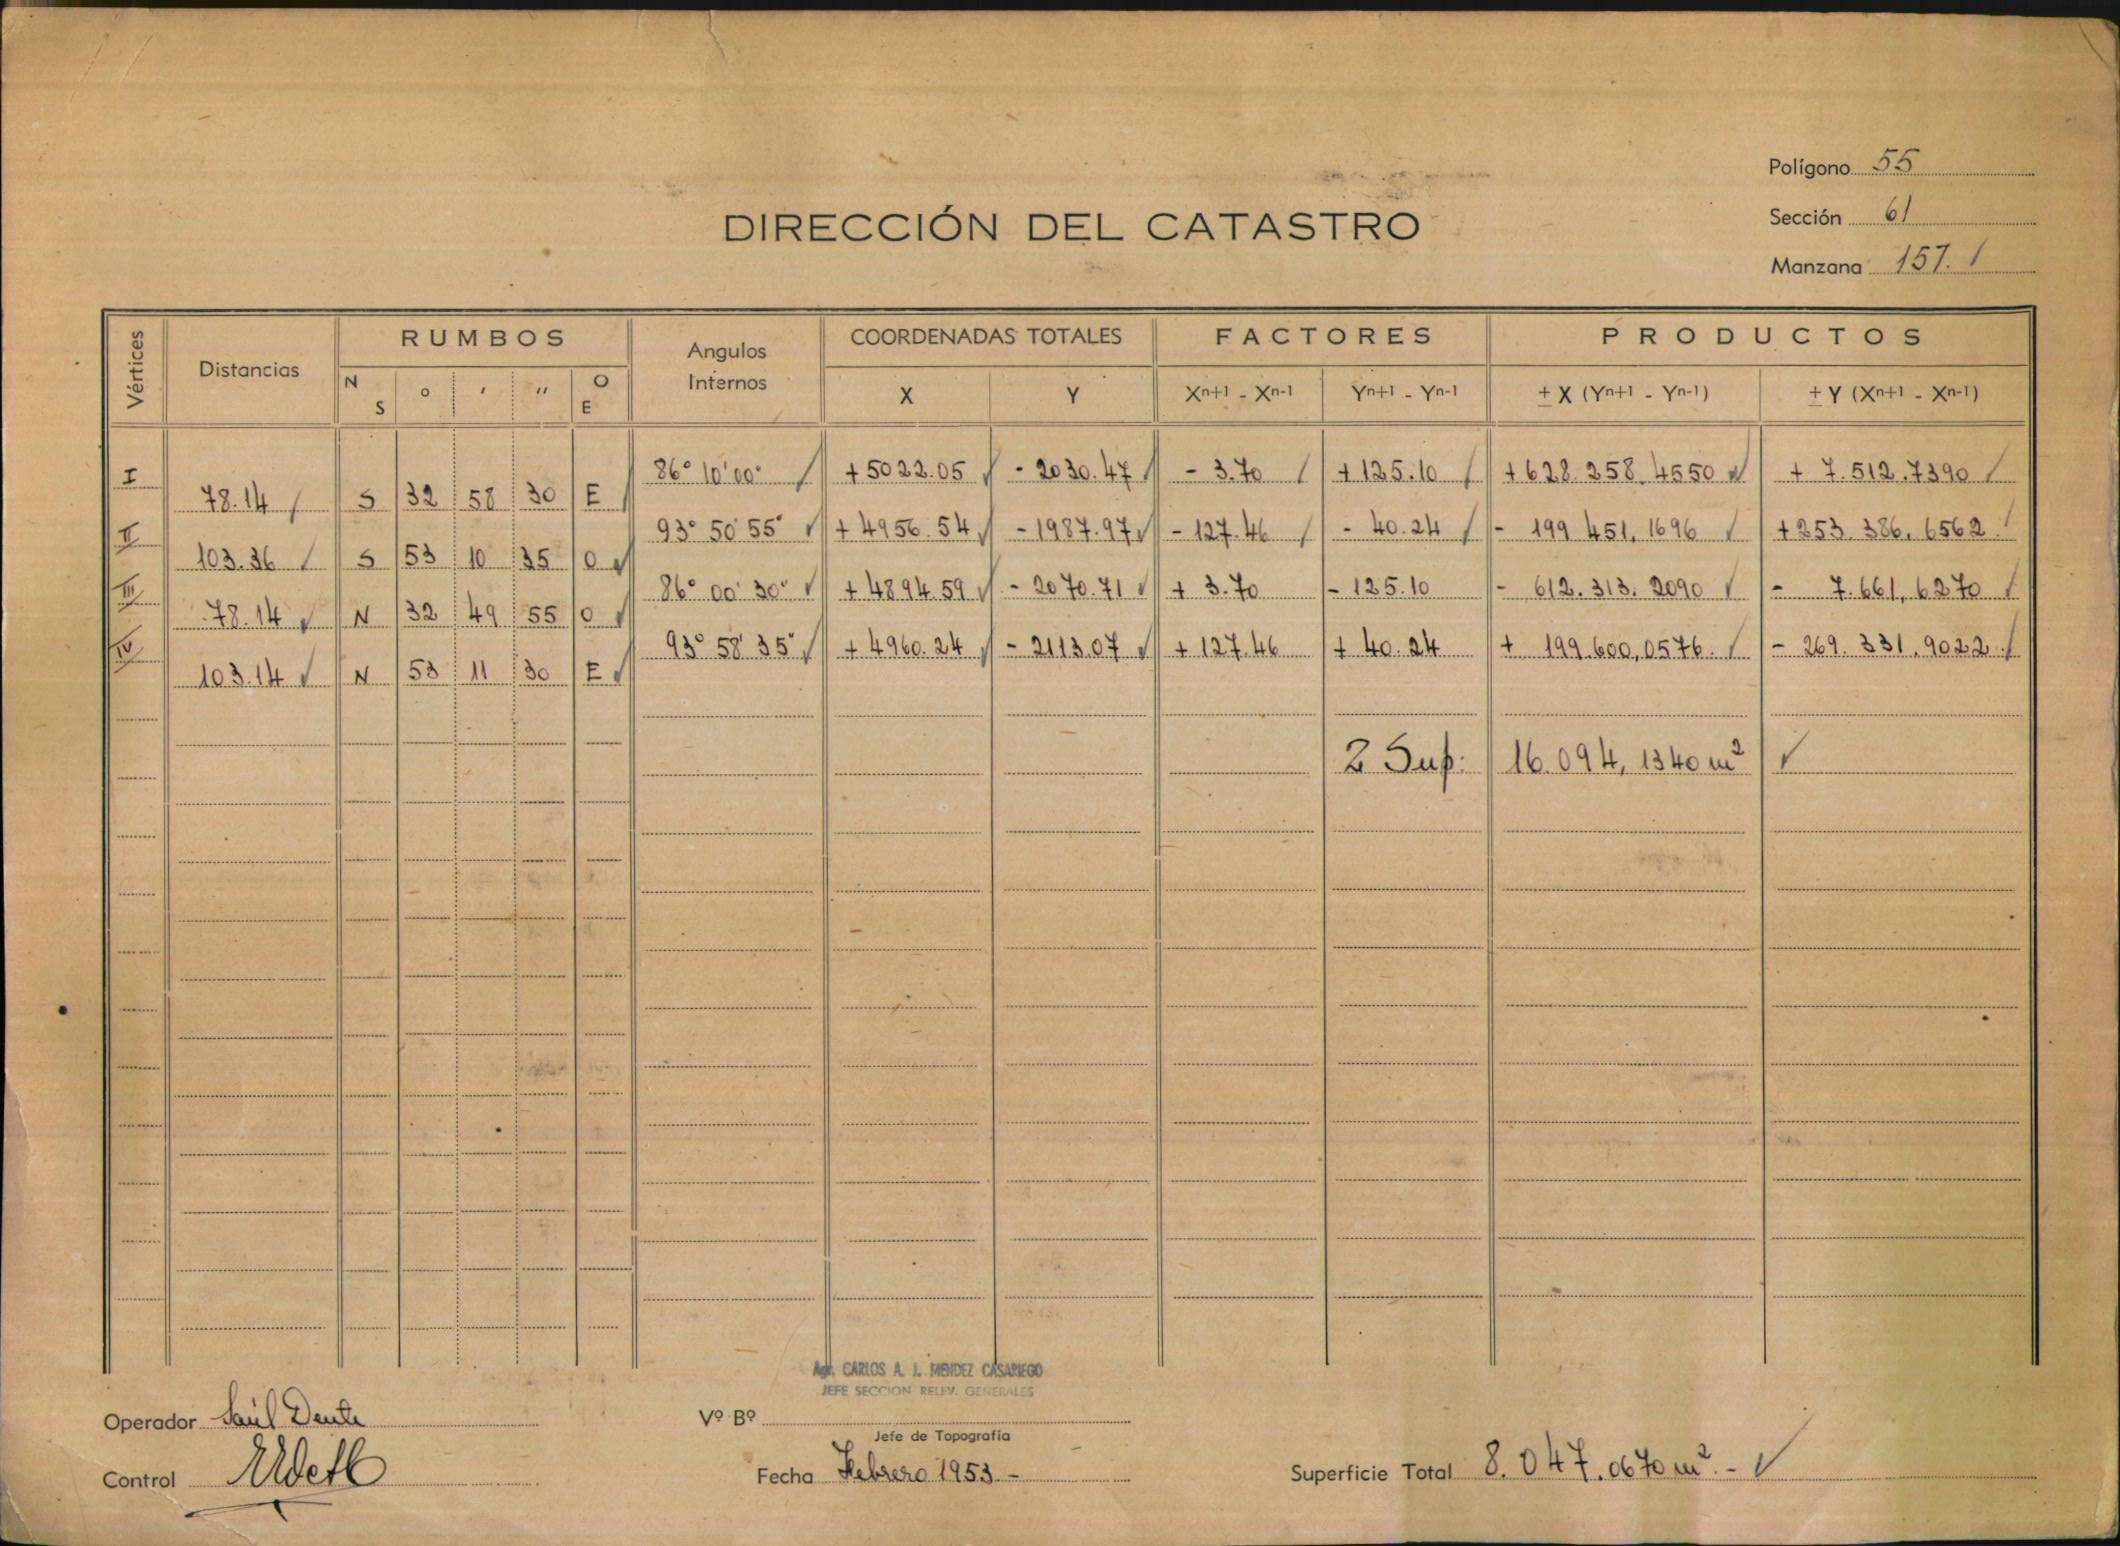 Polígono 55
Sección 61
DIRECCIÓN DEL CATASTRO
Manzana 157.1
Vértices Distancias RUMBOS Angulos Internos COORDENADAS TOTALES FACTORES PRODUCTOS
N S ° ' " O E X Y Xn+1 - Xn-1 Yn+1 - Yn-1 ± X (Yn+1 - Yn-1) ± Y (Xn+1 - Xn-1)
I 86° 10' 00" +5022.05 - 2030.47 - 3.70 +125.10 +628.258.4550 + 7.512.7390
78.14 S 32 58 30 E
II 93° 50' 55" +4956.54 -1987.97 -127.46 - 40.24 - 199 451,1696 +253.386,6562
103.36 S 53 10 35 O
III 86° 00' 30" +4894.59 - 2070.71 + 3.70 - 125.10 - 612.313,2090 - 7.661,6270
78.14 N 32 49 55 O
IV 93° 58' 35" + 4960.24 - 2113.07 + 127.46 + 40.24 + 199.600,0576 - 269.331.9022
103.14 N 53 11 30 E
2 Sup: 16.094,1340 m²
Agr. CARLOS A. J. MENDEZ CASARIEGO
JEFE SECCION RELEV. GENERALES
Operador Saúl Dente
Vº Bº
Jefe de Topografía
Control
Fecha Febrero 1953.-
Superficie Total 8.047.0670 m².-